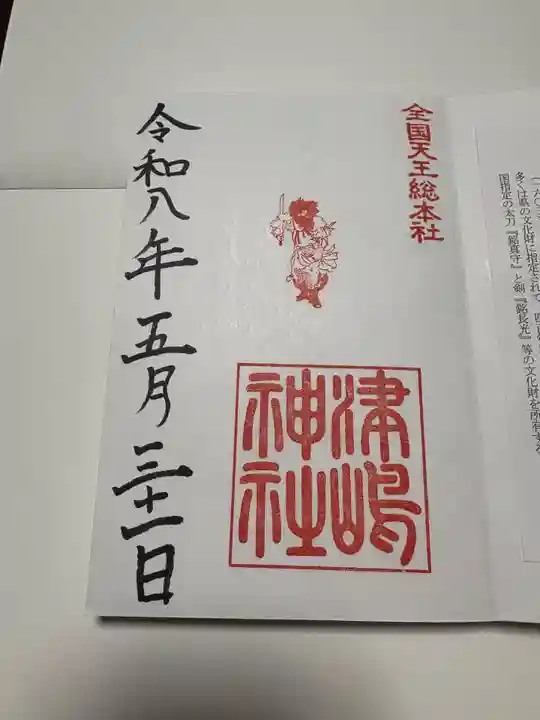 多くは県の文化財に指定されて
国指定の太刀『銘真守』と剣『銘長光』等の文化財を所有する
全国天王総本社
津嶋
神社
令和八年五月三十一日